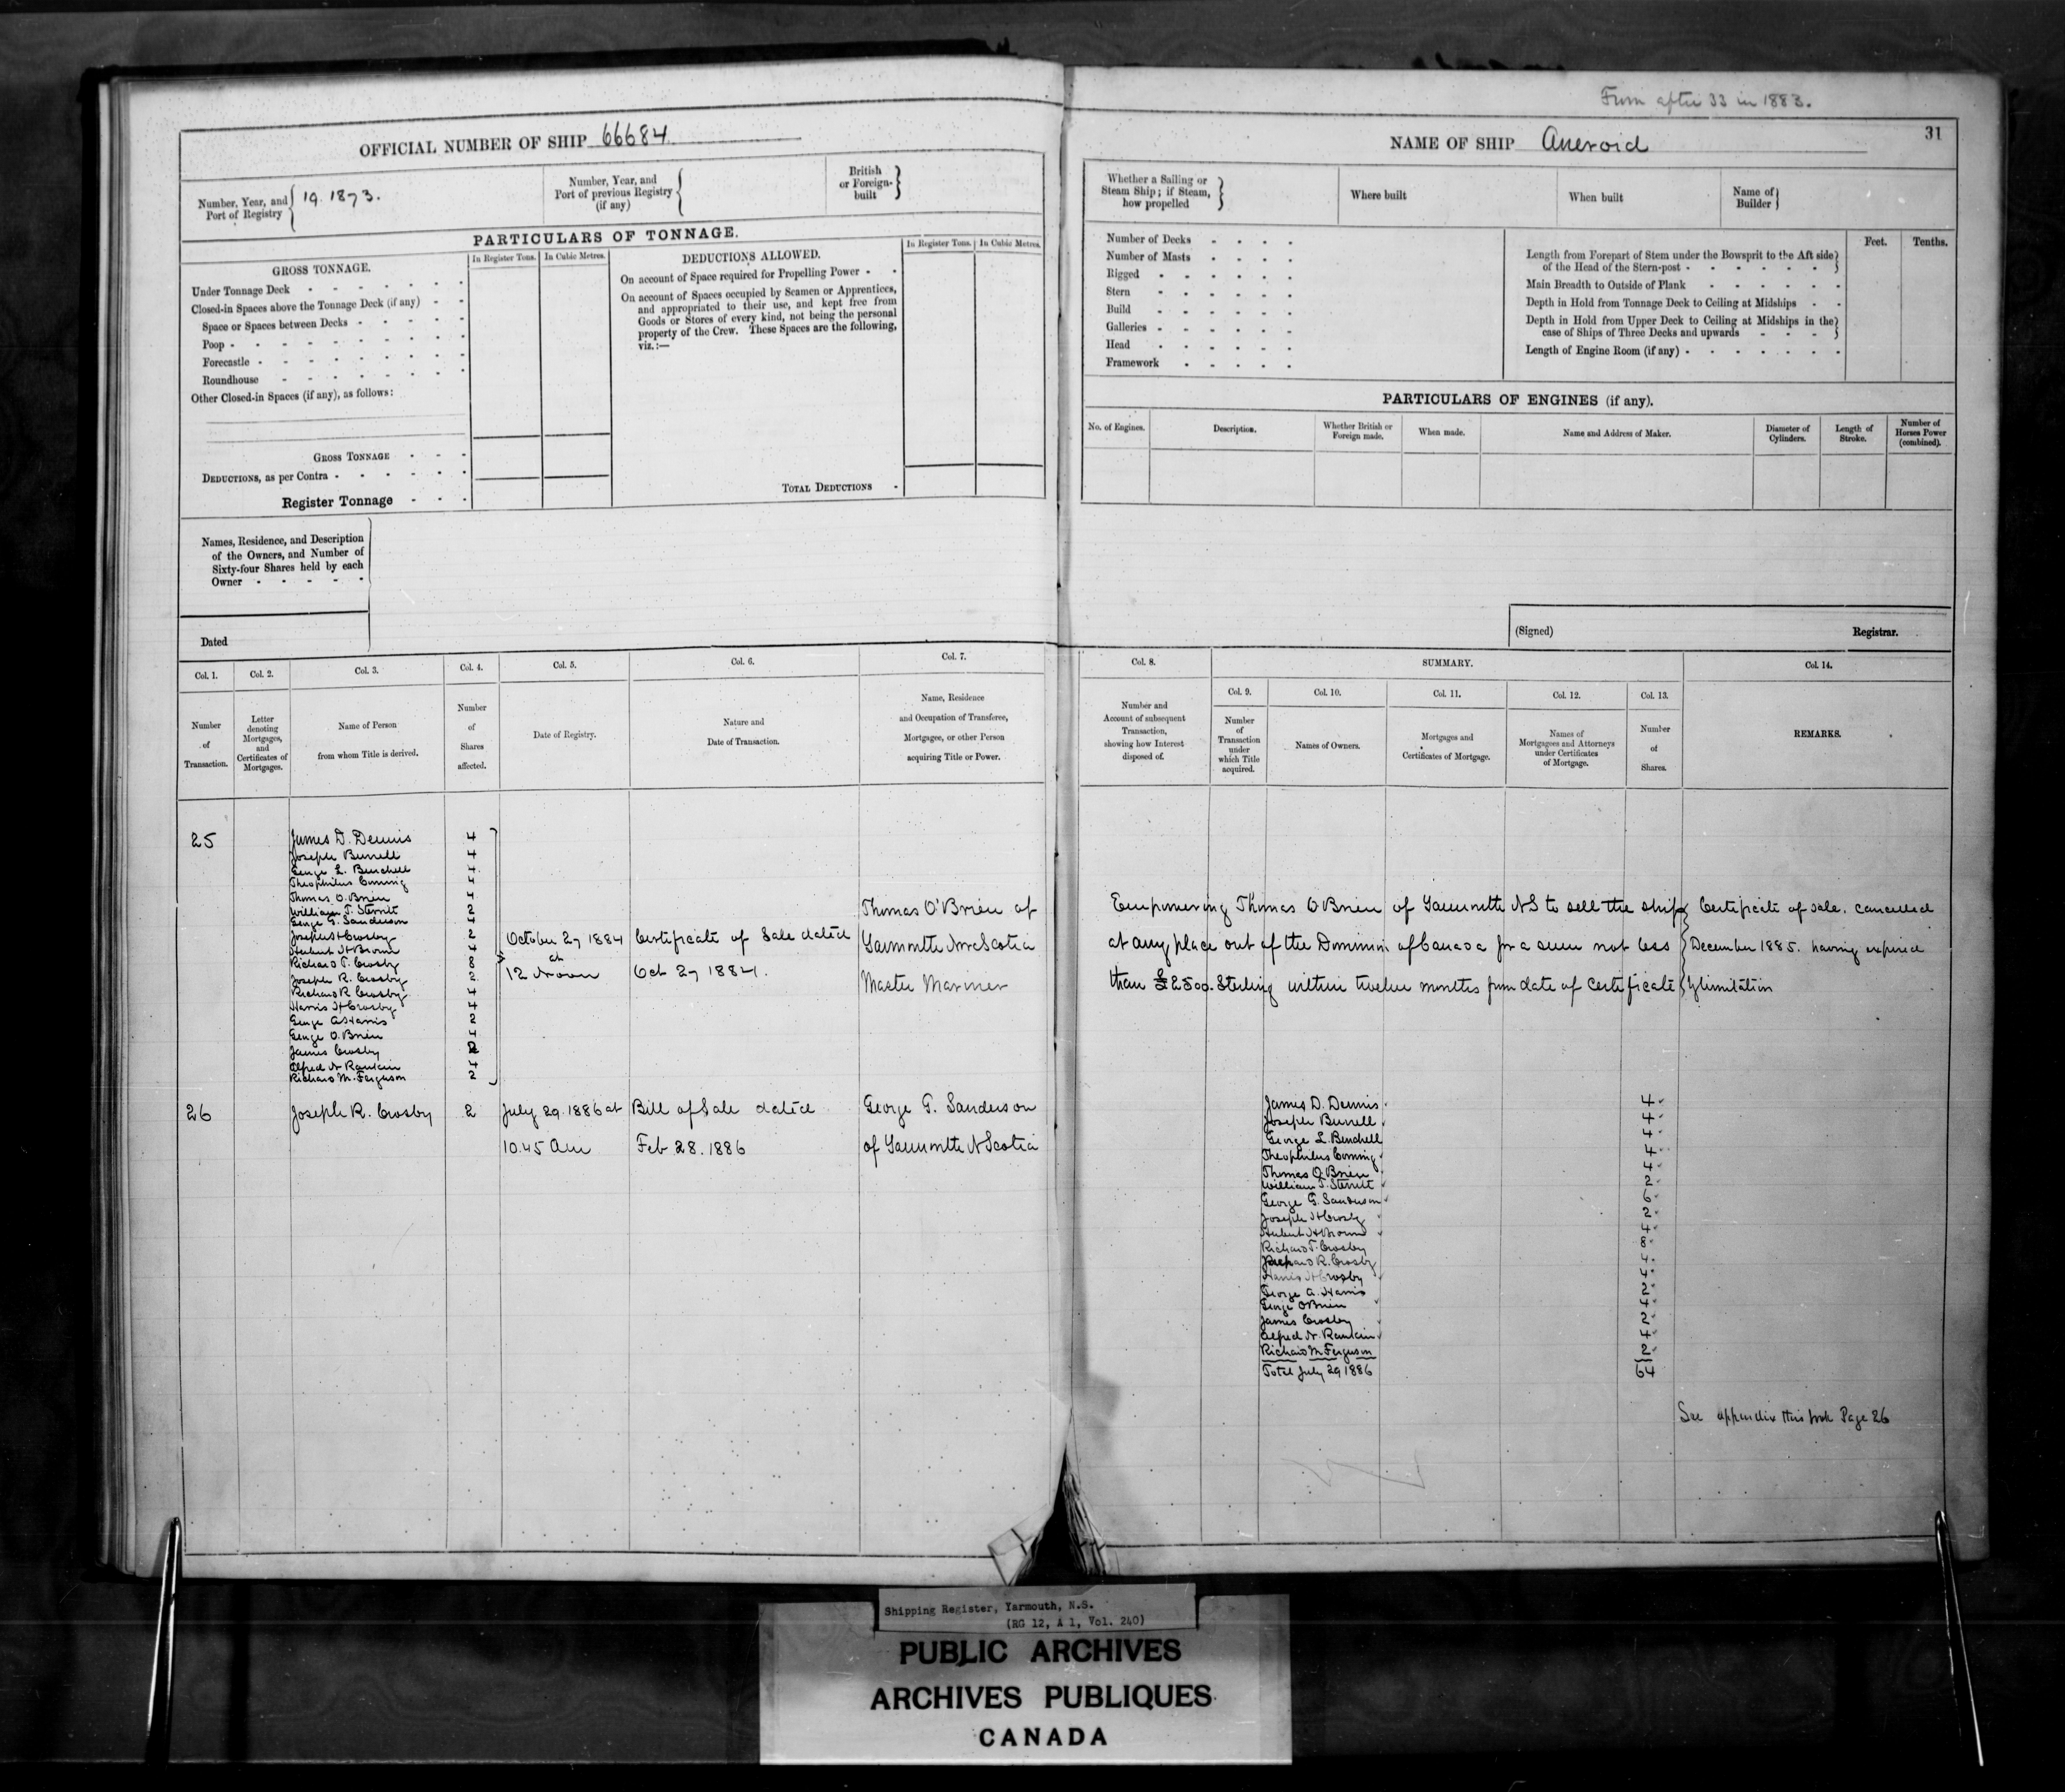 From after 33 in 1883.
OFFICIAL NUMBER OF SHIP 66684
NAME OF SHIP Aneroid
31
Number, Year, and Port of Registry
19. 1873.
Number, Year, and Port of previous Registry (if any)
British or Foreign-built
Whether a Sailing or Steam Ship; if Steam, how propelled
Where built
When built
Name of Builder
PARTICULARS OF TONNAGE.
GROSS TONNAGE.
In Register Tons.
In Cubic Metres.
Under Tonnage Deck
Closed-in Spaces above the Tonnage Deck (if any)
Space or Spaces between Decks
Poop
Forecastle
Roundhouse
Other Closed-in Spaces (if any), as follows:
GROSS TONNAGE
DEDUCTIONS, as per Contra
Register Tonnage
DEDUCTIONS ALLOWED.
In Register Tons.
In Cubic Metres.
On account of Space required for Propelling Power
On account of Spaces occupied by Seamen or Apprentices,
and appropriated to their use, and kept free from
Goods or Stores of every kind, not being the personal
property of the Crew. These Spaces are the following,
viz.:—
TOTAL DEDUCTIONS
Number of Decks
Number of Masts
Rigged
Stern
Build
Galleries
Head
Framework
Feet.
Tenths.
Length from Forepart of Stem under the Bowsprit to the Aft side
of the Head of the Stern-post
Main Breadth to Outside of Plank
Depth in Hold from Tonnage Deck to Ceiling at Midships
Depth in Hold from Upper Deck to Ceiling at Midships in the
case of Ships of Three Decks and upwards
Length of Engine Room (if any)
PARTICULARS OF ENGINES (if any).
No. of Engines.
Description.
Whether British or Foreign made.
When made.
Name and Address of Maker.
Diameter of Cylinders.
Length of Stroke.
Number of Horses Power (combined).
Names, Residence, and Description
of the Owners, and Number of
Sixty-four Shares held by each
Owner
Dated
(Signed)
Registrar.
Col. 1.
Number of Transaction.
Col. 2.
Letter denoting Mortgages, and Certificates of Mortgages.
Col. 3.
Name of Person from whom Title is derived.
Col. 4.
Number of Shares affected.
Col. 5.
Date of Registry.
Col. 6.
Nature and Date of Transaction.
Col. 7.
Name, Residence and Occupation of Transferee, Mortgagee, or other Person acquiring Title or Power.
Col. 8.
Number and Account of subsequent Transaction, showing how Interest disposed of.
SUMMARY.
Col. 9.
Number of Transaction under which Title acquired.
Col. 10.
Names of Owners.
Col. 11.
Mortgages and Certificates of Mortgage.
Col. 12.
Names of Mortgagees and Attorneys under Certificates of Mortgage.
Col. 13.
Number of Shares.
Col. 14.
REMARKS.
25
James D. Dennis 4
Joseph Burrell 4
George L. Burchell 4
Theophilus Corning 4
Thomas O. Brien 4
William T. Sterritt 2
George G. Sanderson 4
Joseph H Crosby 2
Hubert H Brown 4
Richard T. Crosby 8
Joseph R. Crosby 2
Richard R Crosby 4
Harris H Crosby 4
George A Harris 2
George O. Brien 4
James Crosby 2
Alfred N Rankin 4
Richard M. Ferguson 2
October 27 1884
at
12 Noon
Certificate of Sale dated
Oct 27 1884.
Thomas O'Brien of
Yarmouth Nova Scotia
Master Mariner
Empowering Thomas O Brien of Yarmouth NS to sell the ship
at any place out of the Dominion of Canada for a sum not less
than £2500. Sterling within twelve months from date of certificate
Certificate of sale. Cancelled
December 1885. having expired
by limitation
26
Joseph R. Crosby 2
July 29. 1886 at
10.45 am
Bill of Sale dated
Feb 28. 1886
George G. Sanderson
of Yarmouth N Scotia
James D. Dennis 4
Joseph Burrell 4
George L. Burchell 4
Theophilus Corning 4
Thomas O. Brien 4
William T. Sterritt 2
George G. Sanderson 6
Joseph H Crosby 2
Hubert H Brown 4
Richard T. Crosby 8
Richard R. Crosby 4
Harris H Crosby 4
George A. Harris 2
George O Brien 4
James Crosby 2
Alfred N. Rankin 4
Richard M Ferguson 2
Total July 29 1886 64
See appendix this book Page 26
Shipping Register, Yarmouth, N.S.
(RG 12, A 1, Vol. 240)
PUBLIC ARCHIVES
ARCHIVES PUBLIQUES
CANADA